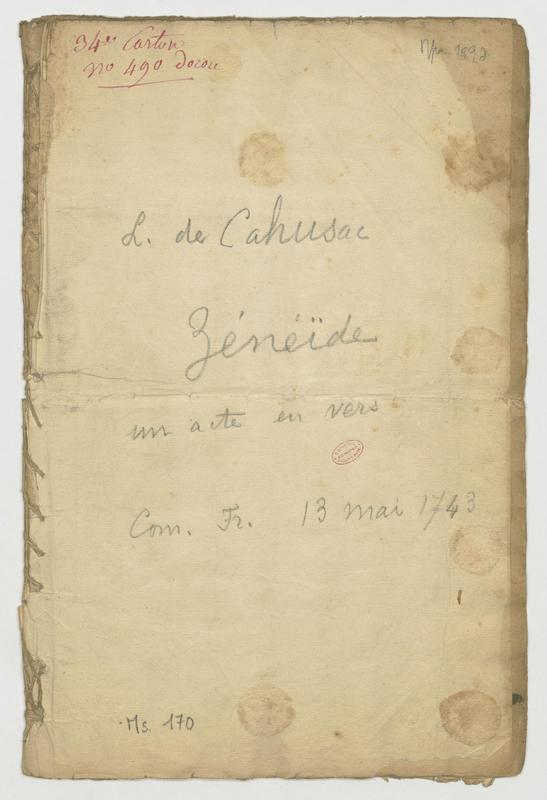 34e Carton
no 490
L. de Cahusac
Zénéïde
un acte en vers
Com. Fr. 13 mai 1743
Ms. 170